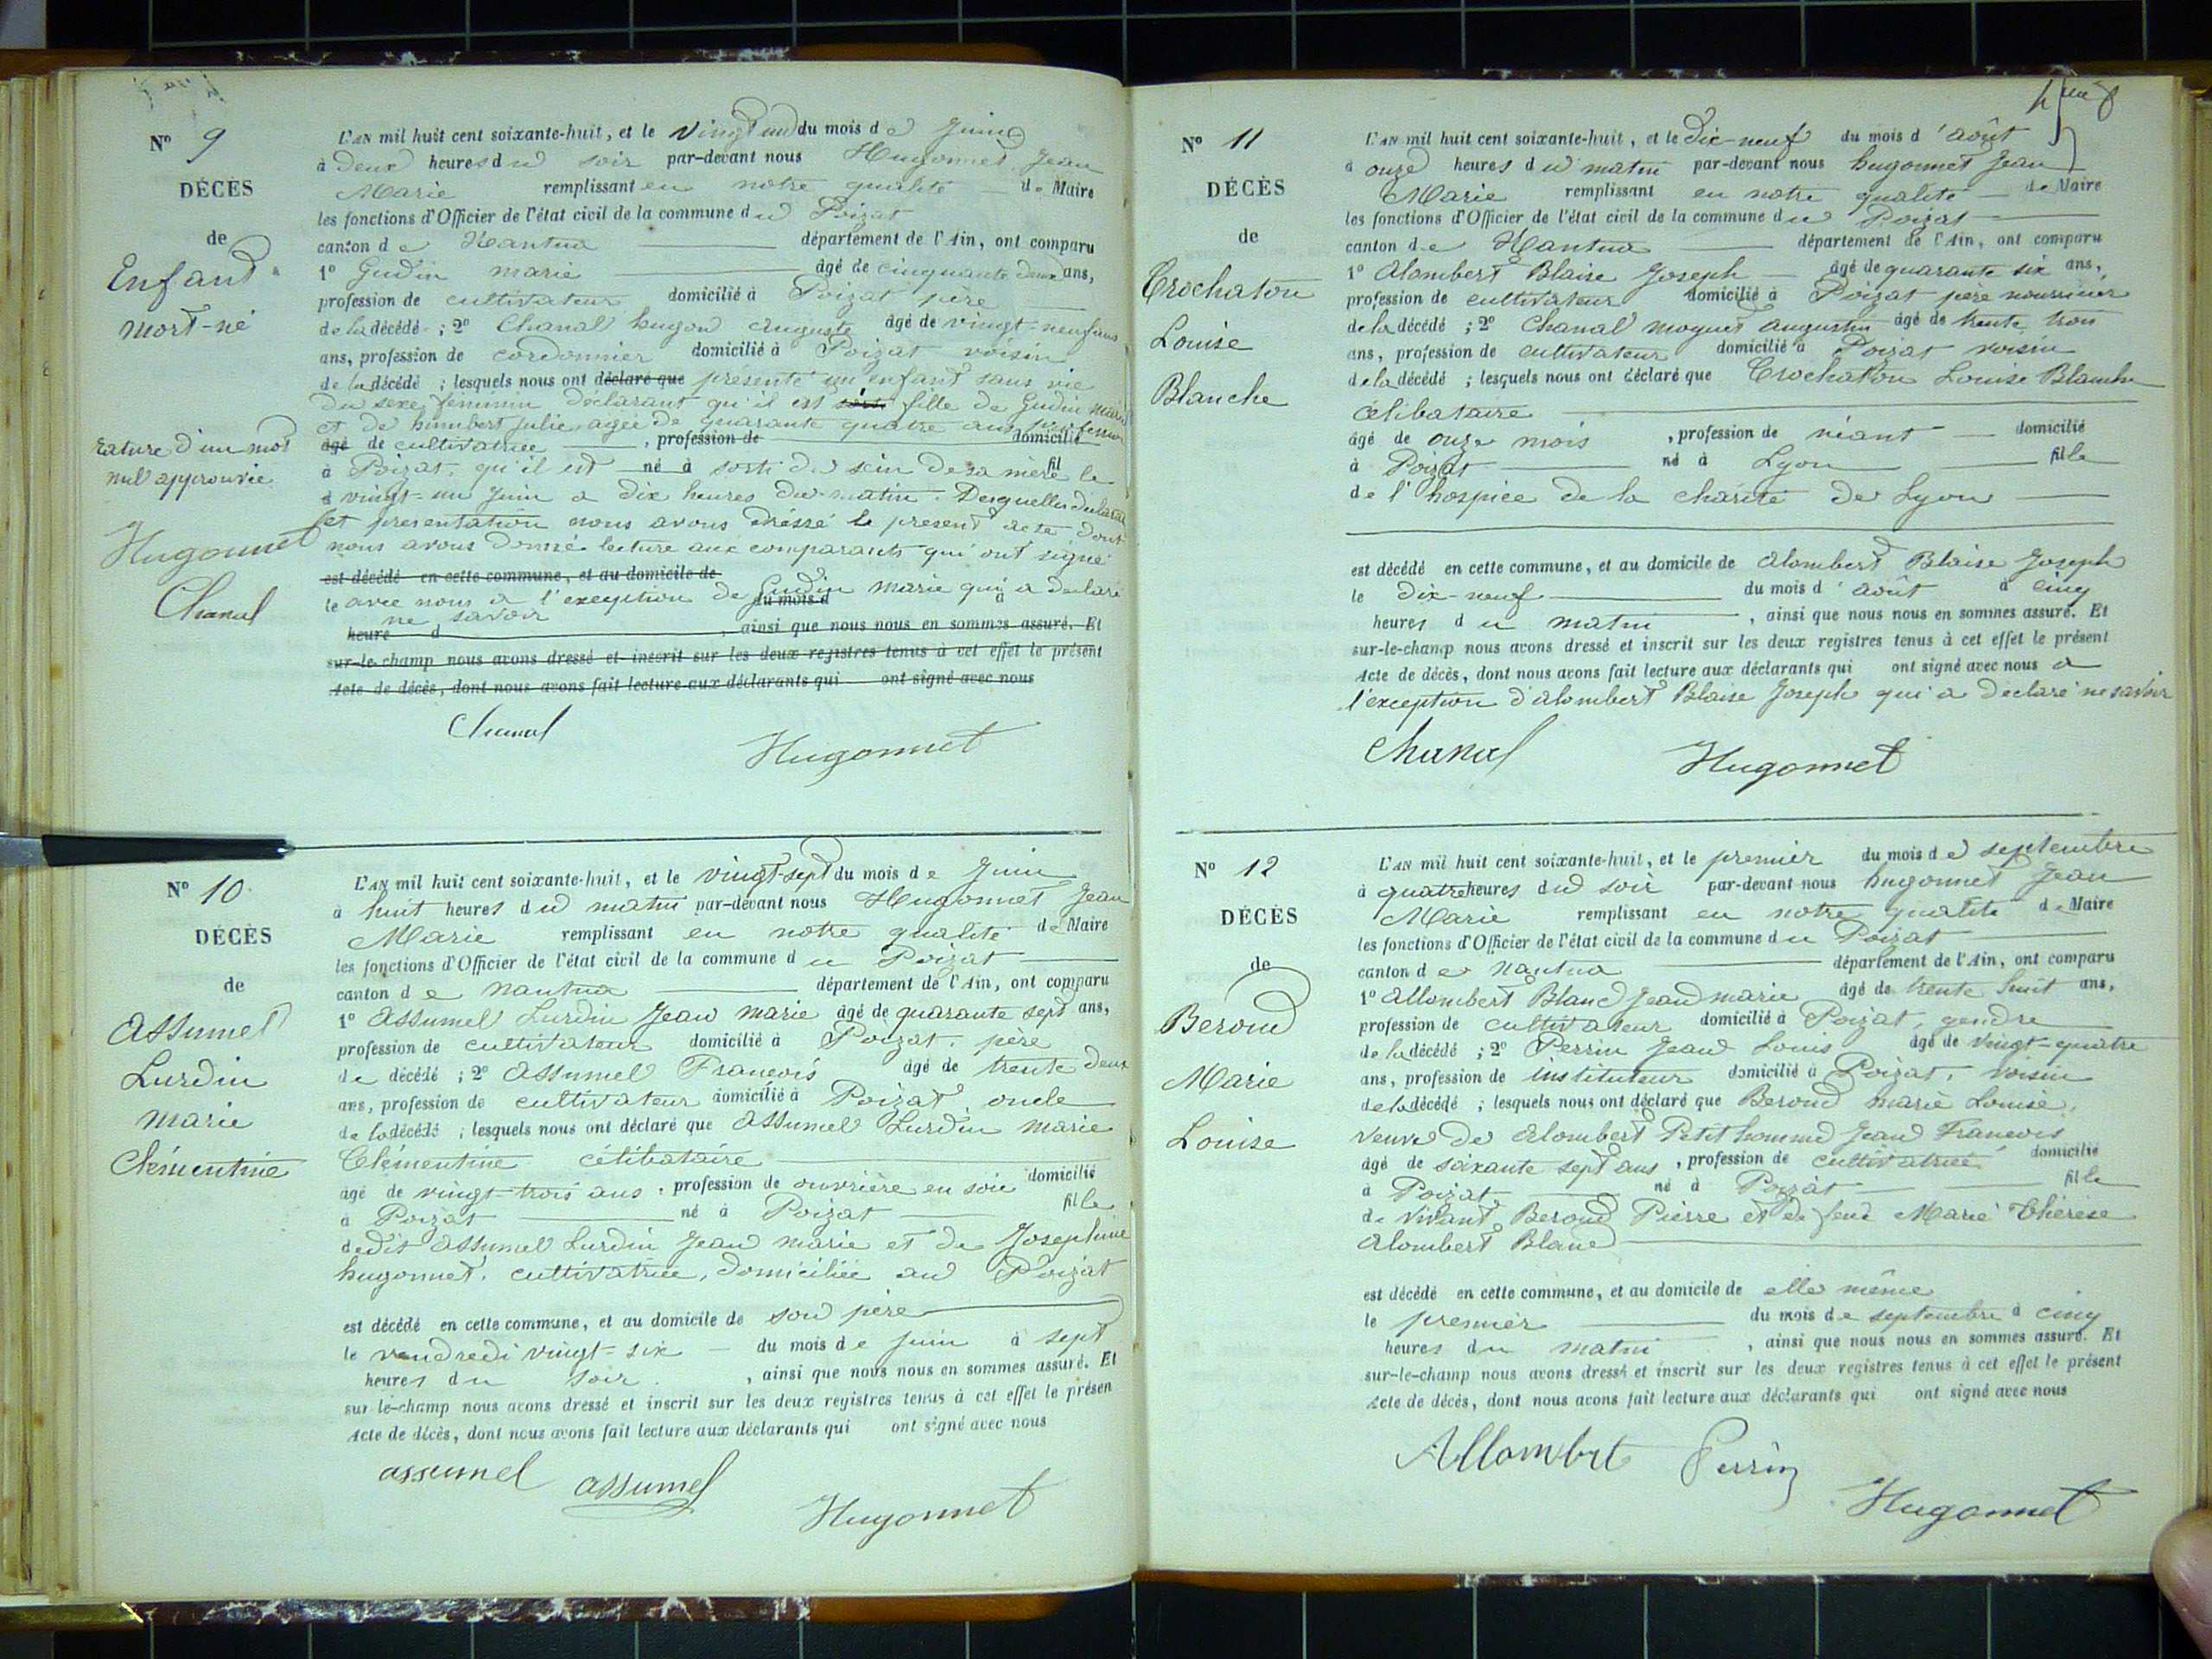 Nº 9
DÉCÈS
de
Enfant
mort-né
rature d'un mot
nul approuvée
Hugonnet
Chanal
L'AN mil huit cent soixante-huit, et le vingt un du mois de Juin
à deux heures du soir par-devant nous Hugonnet Jean
Marie remplissant en notre qualité de Maire
les fonctions d'Officier de l'état civil de la commune du Poizat
canton de Nantua département de l'Ain, ont comparu
1º Gudin marie âgé de cinquante deux ans,
profession de cultivateur domicilié à Poizat père
de la décédé ; 2º Chanal hugon Auguste âgé de vingt-neuf ans
ans, profession de cordonnier domicilié à Poizat voisin
de la décédé ; lesquels nous ont déclaré que présenté un enfant sans vie
du sexe féminin déclarant qu'il est fille de Gudin marie
et de humbert Julie, agée de quarante quatre ans,
âgé de cultivatrice , profession de domicilié
à Poizat, qu'il est né à sorti du sein de sa mère fil le
d vingt-un Juin a dix heures du matin. Desquelles
et presentation nous avons dréssé le present acte dont
nous avons donné lecture aux comparants qui ont signé
est décédé en cette commune, et au domicile de
le avec nous a l'exception de Gudin marie qui a declaré
du mois d à
ne savoir
heure d , ainsi que nous nous en sommes assuré. Et
sur-le-champ nous avons dressé et inscrit sur les deux registres tenus à cet effet le présent
Acte de décès, dont nous avons fait lecture aux déclarants qui ont signé avec nous
Chanal
Hugonnet
Nº 10
DÉCÈS
de
Assumel
Lurdin
marie
Clémentine
L'AN mil huit cent soixante-huit, et le vingt-sept du mois de Juin
à huit heures du matin par-devant nous Hugonnet Jean
Marie remplissant en notre qualité de Maire
les fonctions d'Officier de l'état civil de la commune du Poizat
canton de nantua département de l'Ain, ont comparu
1º Assumel Lurdin Jean marie âgé de quarante sept ans,
profession de cultivateur domicilié à Poizat, père
de décédé ; 2º Assumel François âgé de trente deux
ans, profession de cultivateur domicilié à Poizat oncle
de la décédé ; lesquels nous ont déclaré que Assumel Lurdin marie
Clémentine célibataire
âgé de vingt-trois ans , profession de ouvrière en soie domicilié
à Poizat né à Poizat fille
de dit Assumel Lurdin Jean marie et de Josephine
hugonnet, cultivatrice, domiciliée au Poizat
est décédé en cette commune, et au domicile de son père
le vendredi vingt-six du mois de juin à sept
heures du soir , ainsi que nous nous en sommes assuré. Et
sur-le-champ nous avons dressé et inscrit sur les deux registres tenus à cet effet le présen
Acte de décès, dont nous avons fait lecture aux déclarants qui ont signé avec nous
assumel
assumel
Hugonnet
Nº 11
DÉCÈS
de
Crochaton
Louise
Blanche
L'AN mil huit cent soixante-huit, et le dix-neuf du mois d'août
à onze heures du matin par-devant nous hugonnet Jean
Marie remplissant en notre qualité de Maire
les fonctions d'Officier de l'état civil de la commune du Poizat
canton de Nantua département de l'Ain, ont comparu
1º Alombert Blaise Joseph âgé de quarante six ans,
profession de cultivateur domicilié à Poizat père nourricier
de la décédé ; 2º Chanal moguet Augustin âgé de trente trois
ans, profession de cultivateur domicilié à Poizat voisin
de la décédé ; lesquels nous ont déclaré que Crochaton Louise Blanche
célibataire
âgé de onze mois , profession de néant domicilié
à Poizat né à Lyon fille
de l'hospice de la charité de Lyon
est décédé en cette commune, et au domicile de Alombert Blaise Joseph
le dix-neuf du mois d'août à cinq
heures du matin , ainsi que nous nous en sommes assuré. Et
sur-le-champ nous avons dressé et inscrit sur les deux registres tenus à cet effet le présent
Acte de décès, dont nous avons fait lecture aux déclarants qui ont signé avec nous a
l'exception d'Alombert Blaise Joseph qui a declaré ne savoir
Chanal
Hugonnet
Nº 12
DÉCÈS
de
Beroud
Marie
Louise
L'AN mil huit cent soixante-huit, et le premier du mois de septembre
à quatre heures du soir par-devant nous hugonnet Jean
Marie remplissant en notre qualité de Maire
les fonctions d'Officier de l'état civil de la commune du Poizat
canton de Nantua département de l'Ain, ont comparu
1º Allombert Blanc Jean marie âgé de trente huit ans,
profession de cultivateur domicilié à Poizat, gendre
de la décédé ; 2º Perrin Jean Louis âgé de vingt-quatre
ans, profession de instituteur domicilié à Poizat, voisin
de la décédé ; lesquels nous ont déclaré que Beroud marie Louise,
veuve de Alombert Petit homme Jean Francois
âgé de soixante sept ans , profession de cultivatrice domicilié
à Poizat né à Poizat fille
de vivant Beroud Pierre et de feue Marie Thérèse
Alombert Blanc
est décédé en cette commune, et au domicile de elle même
le premier du mois de septembre à cinq
heures du matin , ainsi que nous nous en sommes assuré. Et
sur-le-champ nous avons dressé et inscrit sur les deux registres tenus à cet effet le présent
Acte de décès, dont nous avons fait lecture aux déclarants qui ont signé avec nous
Allombert
Perrin
Hugonnet